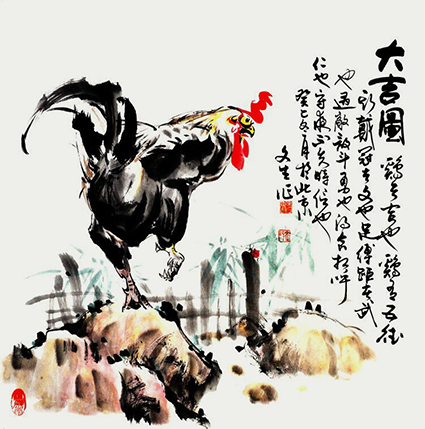 大吉圖 鷄者吉也鷄有五德
頭戴冠者文也足傅距者武
也遇敵敢斗勇也得食相呼
仁也守夜不失時信也
癸巳月於北京
文生作